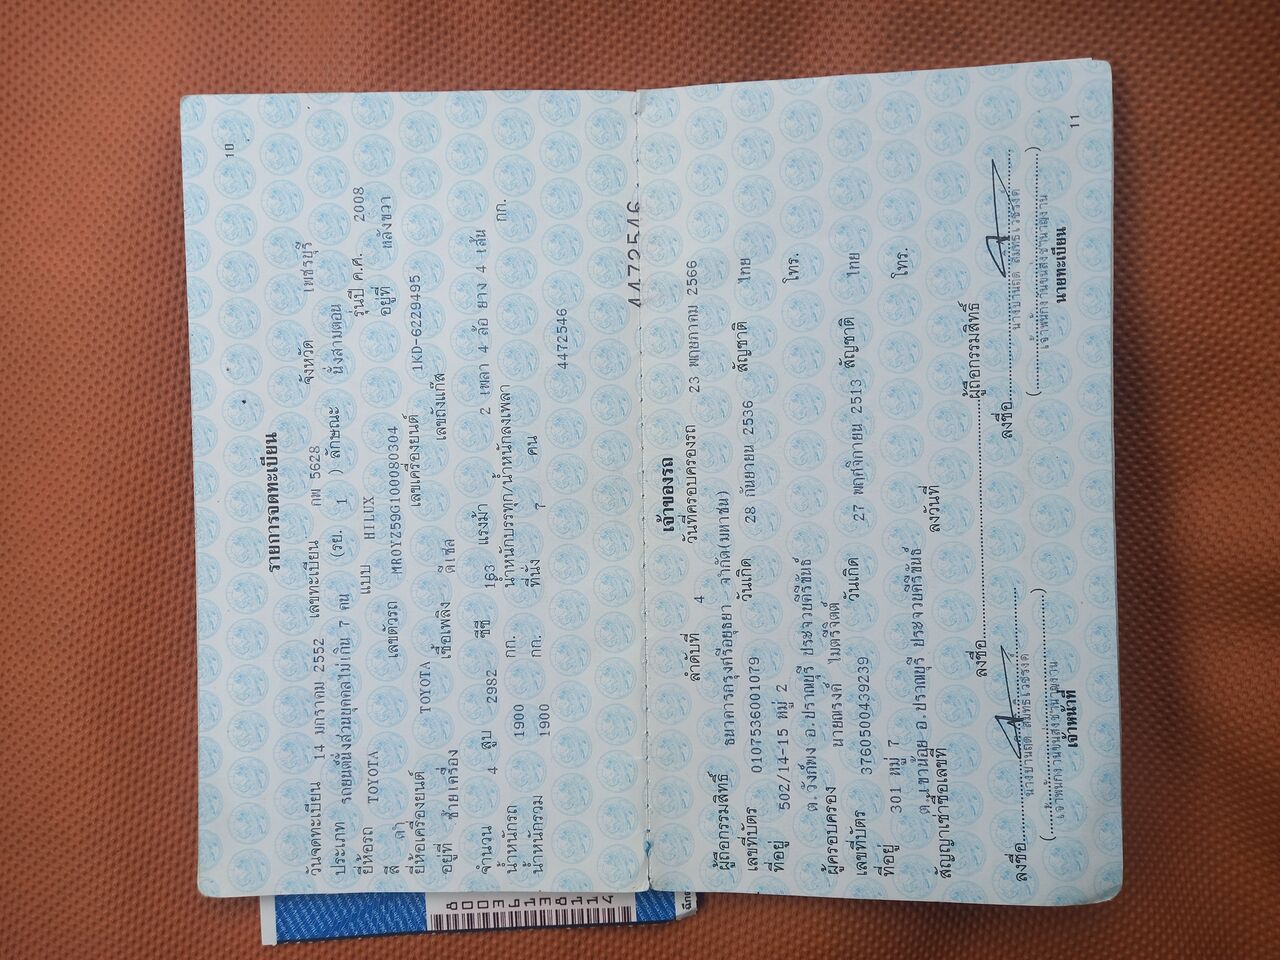 10
รายการจดทะเบียน
วันจดทะเบียน 14 มกราคม 2552 เลขทะเบียน กพ 5628 จังหวัด เพชรบุรี
ประเภท รถยนต์นั่งส่วนบุคคลไม่เกิน 7 คน (รย. 1 ) ลักษณะ นั่งสามตอน
ยี่ห้อรถ TOYOTA แบบ HILUX รุ่นปี ค.ศ. 2008
สี ดำ เลขตัวรถ MR0YZ59G100080304 อยู่ที่ หลังขวา
ยี่ห้อเครื่องยนต์ TOYOTA เลขเครื่องยนต์ 1KD-6229495
อยู่ที่ ซ้ายเครื่อง เชื้อเพลิง ดีเซล เลขถังแก๊ส
จำนวน 4 สูบ 2982 ซีซี 163 แรงม้า 2 เพลา 4 ล้อ ยาง 4 เส้น
น้ำหนักรถ 1900 กก. น้ำหนักบรรทุก/น้ำหนักลงเพลา กก.
น้ำหนักรวม 1900 กก. ที่นั่ง 7 คน
4472546
4472546
เจ้าของรถ
ลำดับที่ 4 วันที่ครอบครองรถ 23 พฤษภาคม 2566
ผู้ถือกรรมสิทธิ์ ธนาคารกรุงศรีอยุธยา จำกัด(มหาชน)
เลขที่บัตร 0107536001079 วันเกิด 28 กันยายน 2536 สัญชาติ ไทย
ที่อยู่ 502/14-15 หมู่ 2 โทร.
ต.วังก์พง อ.ปราณบุรี ประจวบคีรีขันธ์
ผู้ครอบครอง นายณรงค์ ไมตรีจิตต์
เลขที่บัตร 3760500439239 วันเกิด 27 พฤศจิกายน 2513 สัญชาติ ไทย
ที่อยู่ 301 หมู่ 7 โทร.
ต.เขาน้อย อ.ปราณบุรี ประจวบคีรีขันธ์
สัญญาเช่าซื้อเลขที่ ลงวันที่
ลงชื่อ ผู้ถือกรรมสิทธิ์
ลงชื่อ ลงชื่อ
(................) (................)
เจ้าหน้าที่ นายทะเบียน
11
80036138114